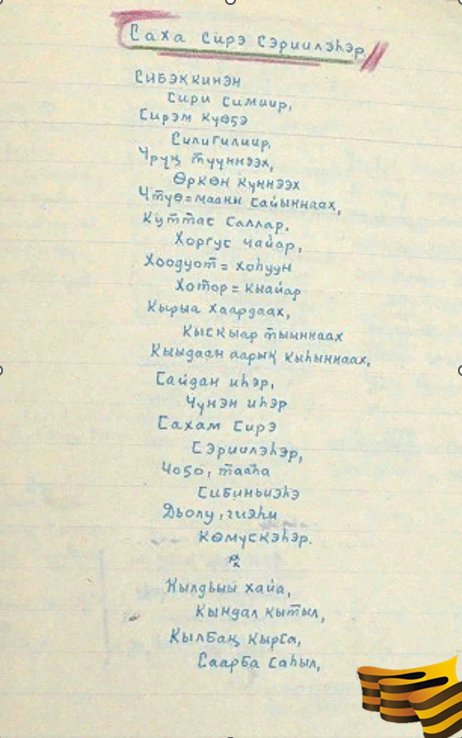 Саха сирэ сэриилэһэр
Сибэккинэн
Сири симиир,
Сирэм күөҕэ
Силигилиир,
Үрүҥ түүннээх,
Өркөн күннээх
Үтүө=мааны сайыннаах,
Куттас саллар,
Хоргус чайар,
Хоодуот=хоһуун
Хотор=кыайар
Кырыа хаардаах,
Кыскыар тыыннаах
Кыыдаан аарыҥ кыһыннаах,
Сайдан иһэр,
Үүнэн иһэр
Сахам сирэ
Сэриилэһэр,
Чоҕо, тааһа
Сибиньиэһэ
Дьолу,
көмүскэһэр.
Кылдьыы хайа,
Кындал кытыл,
Кылбаҥ кырса,
Саарба саһыл,